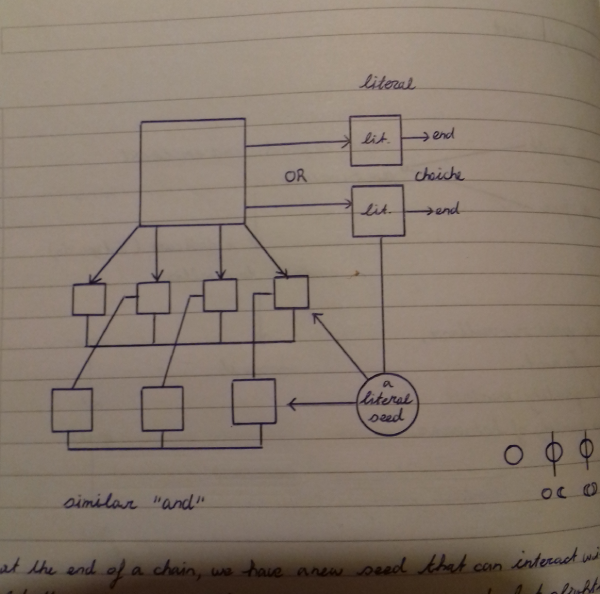 literal
lit. → end
OR
choiche
lit. → end
a
literal
seed
similar "and"
at the end of a chain, we have a new seed that can interact